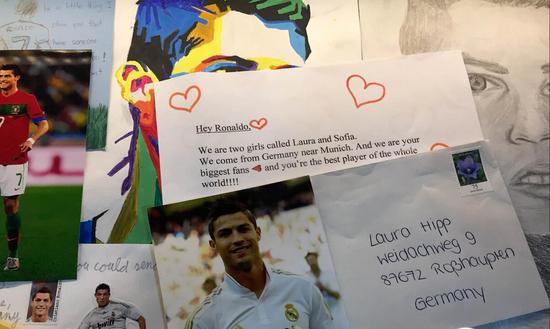 is a little thing I
you that
have someone
Hey Ronaldo,
We are two girls called Laura and Sofia.
We come from Germany near Munich. And we are your
biggest fans and you're the best player of the whole
world!!!!
Laura Hipp
Weidachweg 9
87672 Roßhaupten
Germany
you could send
7